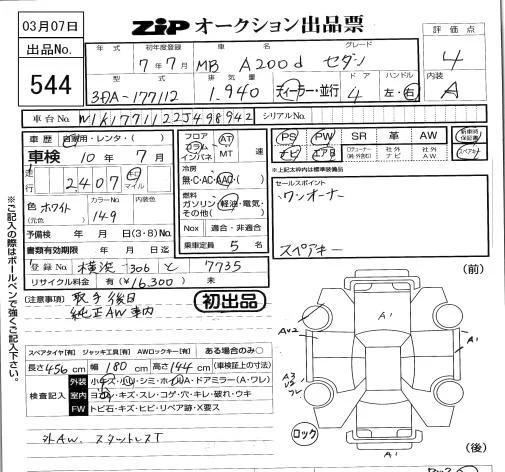 03月07日
ZIP オークション出品票
出品No.
544
年式 初年度登録 車名 グレード
7年7月 MB A200d セダン
型式 排気量 ドア ハンドル
3DA-177112 1.940 ディーラー・並行 4 左・右
評価点
4
内装
A
車台No. W1K1771122J498942 シリアルNo.
車歴 自家用・レンタ・( )
車検 10年 7月
走行 2407 キロ マイル
色 ホワイト カラーNo. 149 内装色
(元色)
予備検 年 月 日 (3・8) No.
書類有効期限 年 月 日迄
登録No. 横浜 306 と 7735
リサイクル料金 有 (¥16.300) 未
フロア コラム インパネ AT MT 速
冷房
無・C・AC・AAC
燃料
ガソリン・軽油・電気・その他( )
Nox 適合・非適合
乗車定員 5 名
PS PW SR 革 AW 新車時保証書
ナビ エアB 社外ナビ 社外AW スペアキー
※上記太枠内は標準装備品
セールスポイント
ワンオーナー
スペアキー
(注意事項) 取手後日
純正AW車内
初出品
※ご記入の際はボールペンで強くご記入下さい。
スペアタイヤ【有】 ジャッキ工具【有】 AWロックキー【有】 ある場合のみ○
長さ 456 cm 幅 180 cm 高さ 144 cm (車検証上の寸法)
検査記入
外装 小キズ・凹・シミ・ホイルA・ドアミラー(A・ワレ)
室内 ヨゴレ・キズ・スレ・コゲ・穴・キレ・破れ・ウキ
FW トビ石・キズ・ヒビ・リペア跡・X要ス
外AW. スタットレスT
(前)
A1
AU2
A1
A1
A3
U2
ワレ
ロック
A1
(後)